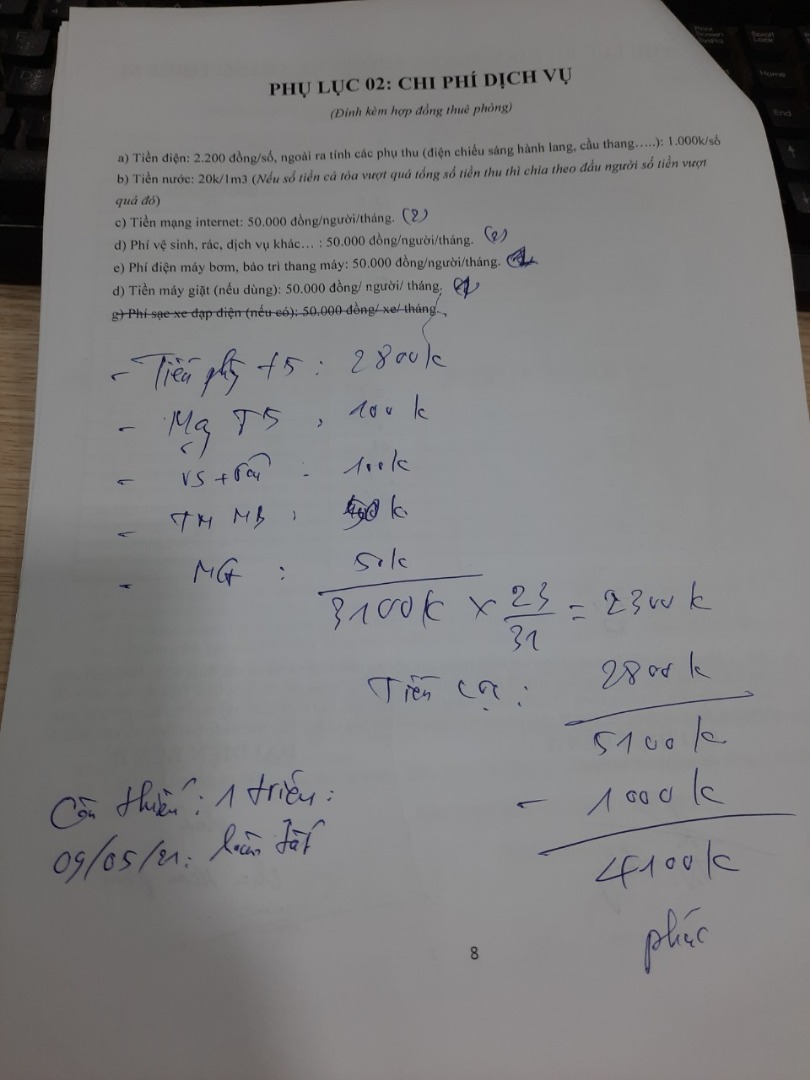 PHỤ LỤC 02: CHI PHÍ DỊCH VỤ
(Đính kèm hợp đồng thuê phòng)
a) Tiền điện: 2.200 đồng/số, ngoài ra tính các phụ thu (điện chiếu sáng hành lang, cầu thang…..): 1.000k/số
b) Tiền nước: 20k/1m3 (Nếu số tiền cả tòa vượt quá tổng số tiền thu thì chia theo đầu người số tiền vượt
quá đó)
c) Tiền mạng internet: 50.000 đồng/người/tháng. (2)
d) Phí vệ sinh, rác, dịch vụ khác… : 50.000 đồng/người/tháng. (2)
e) Phí điện máy bơm, bảo trì thang máy: 50.000 đồng/người/tháng.
d) Tiền máy giặt (nếu dùng): 50.000 đồng/ người/ tháng.
g) Phí sạc xe đạp điện (nếu có): 50.000 đồng/ xe/ tháng.
- Tiền phg T5 : 2800k
- Mạg T5 : 100k
- VS + : 100k
- TM MB : k
- MG : 50k
3100k × 23/31 = 2300k
Tiền cọc : 2800k
5100k
Còn thiếu : 1 triệu : - 1000k
09/05/21 : hoàn tất
4100k
phúc
8